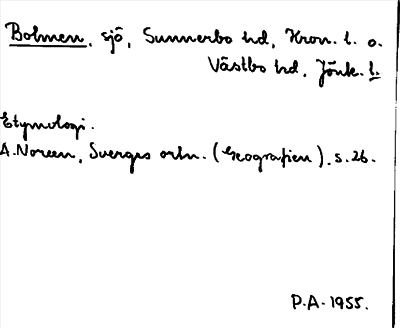 Bolmen, sjö, Sunnerbo hd, Kron. l. o.
Västbo hd, Jönk. l.
Etymologi.
A. Noreen, Sverges ortn. (Geografien), s. 26.
P.A. 1955.